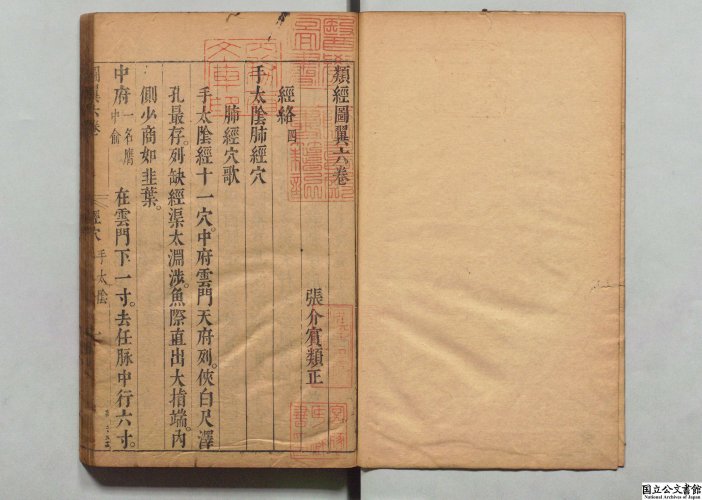 類經圖翼六卷
張介賓類正
經絡 四
手太陰肺經穴
肺經穴歌
手太陰經十一穴。中府雲門天府列。俠白尺澤
孔最存。列缺經渠太淵涉。魚際直出大指端。內
側少商如韭葉。
中府 一名膺中俞 在雲門下一寸。去任脉中行六寸。
經穴 手太陰
国立公文書館
National Archives of Japan